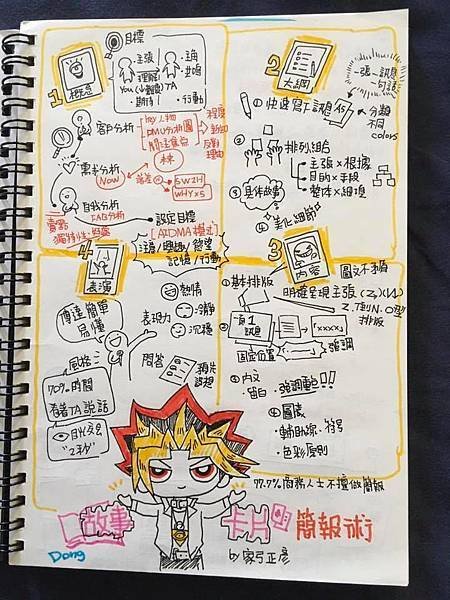 1
概念
目標
主張
理解
期待
You (心觀度) TA
立場
共鳴
行動
客戶分析
key人物
DMU分析圖
關注焦点
程度
動機
反對
理由
需求分析
Now
落差
5W2H
WHY×5
自我分析
FAB分析
賣點
獨特性
設定目標
[AIDMA模式]
注意/興趣/慾望
記憶/行動
2
大綱
一張一訊息
一句話
①快速寫下訊息
A5
分類
不同
colors
②排列組合
主張×根據
目的×手段
整体×細項
③具体故事
④美化細節
3
內容
圖文不擠
①基本排版
明確呈現主張
Z.T到N.O型
排版
頁1
訊息
xxxxx
固定位置
強調
②內文
留白
強調範句!!
③圖處
輔助線、符号
色彩原則
4
表演
傳達簡單
易懂
表現力
熱情
冷靜
沉穩
風格
70%時間
看著TA說話
目光交会
"2秒"
問答
預想
77.7%商務人士不擅做簡報
故事卡片簡報術
by 家弓正彥
Dong